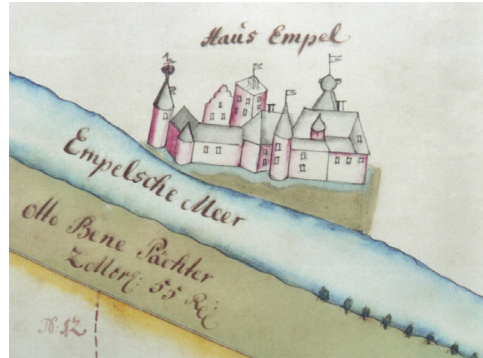 Haus Empel
Empelsche Meer
Otto Bene Pächter
2 Morg: 55 Rt
N: 12